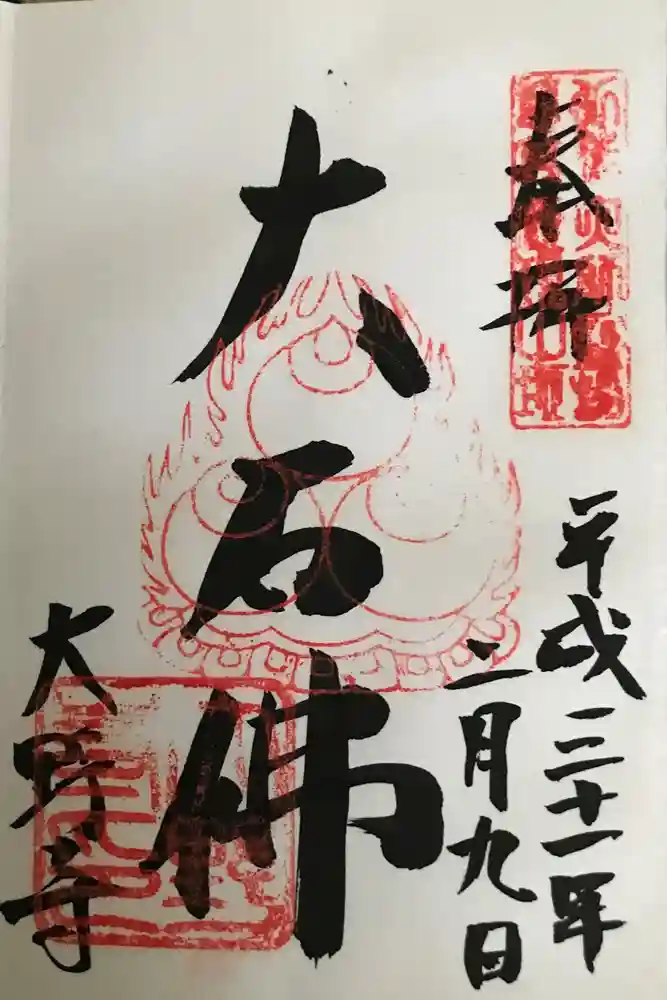 奉拝
平成三十一年
二月九日
大石仏
大野寺